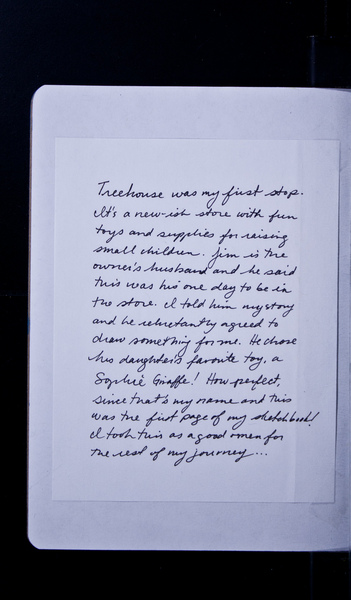 Treehouse was my first stop.
It's a new-ish store with fun
toys and supplies for raising
small children. Jim is the
owner's husband and he said
this was his one day to be in
the store. I told him my story
and he reluctantly agreed to
draw something for me. He chose
his daughter's favorite toy, a
Sophie Giraffe! How perfect,
since that's my name and this
was the first page of my sketchbook!
I took this as a good omen for
the rest of my journey...